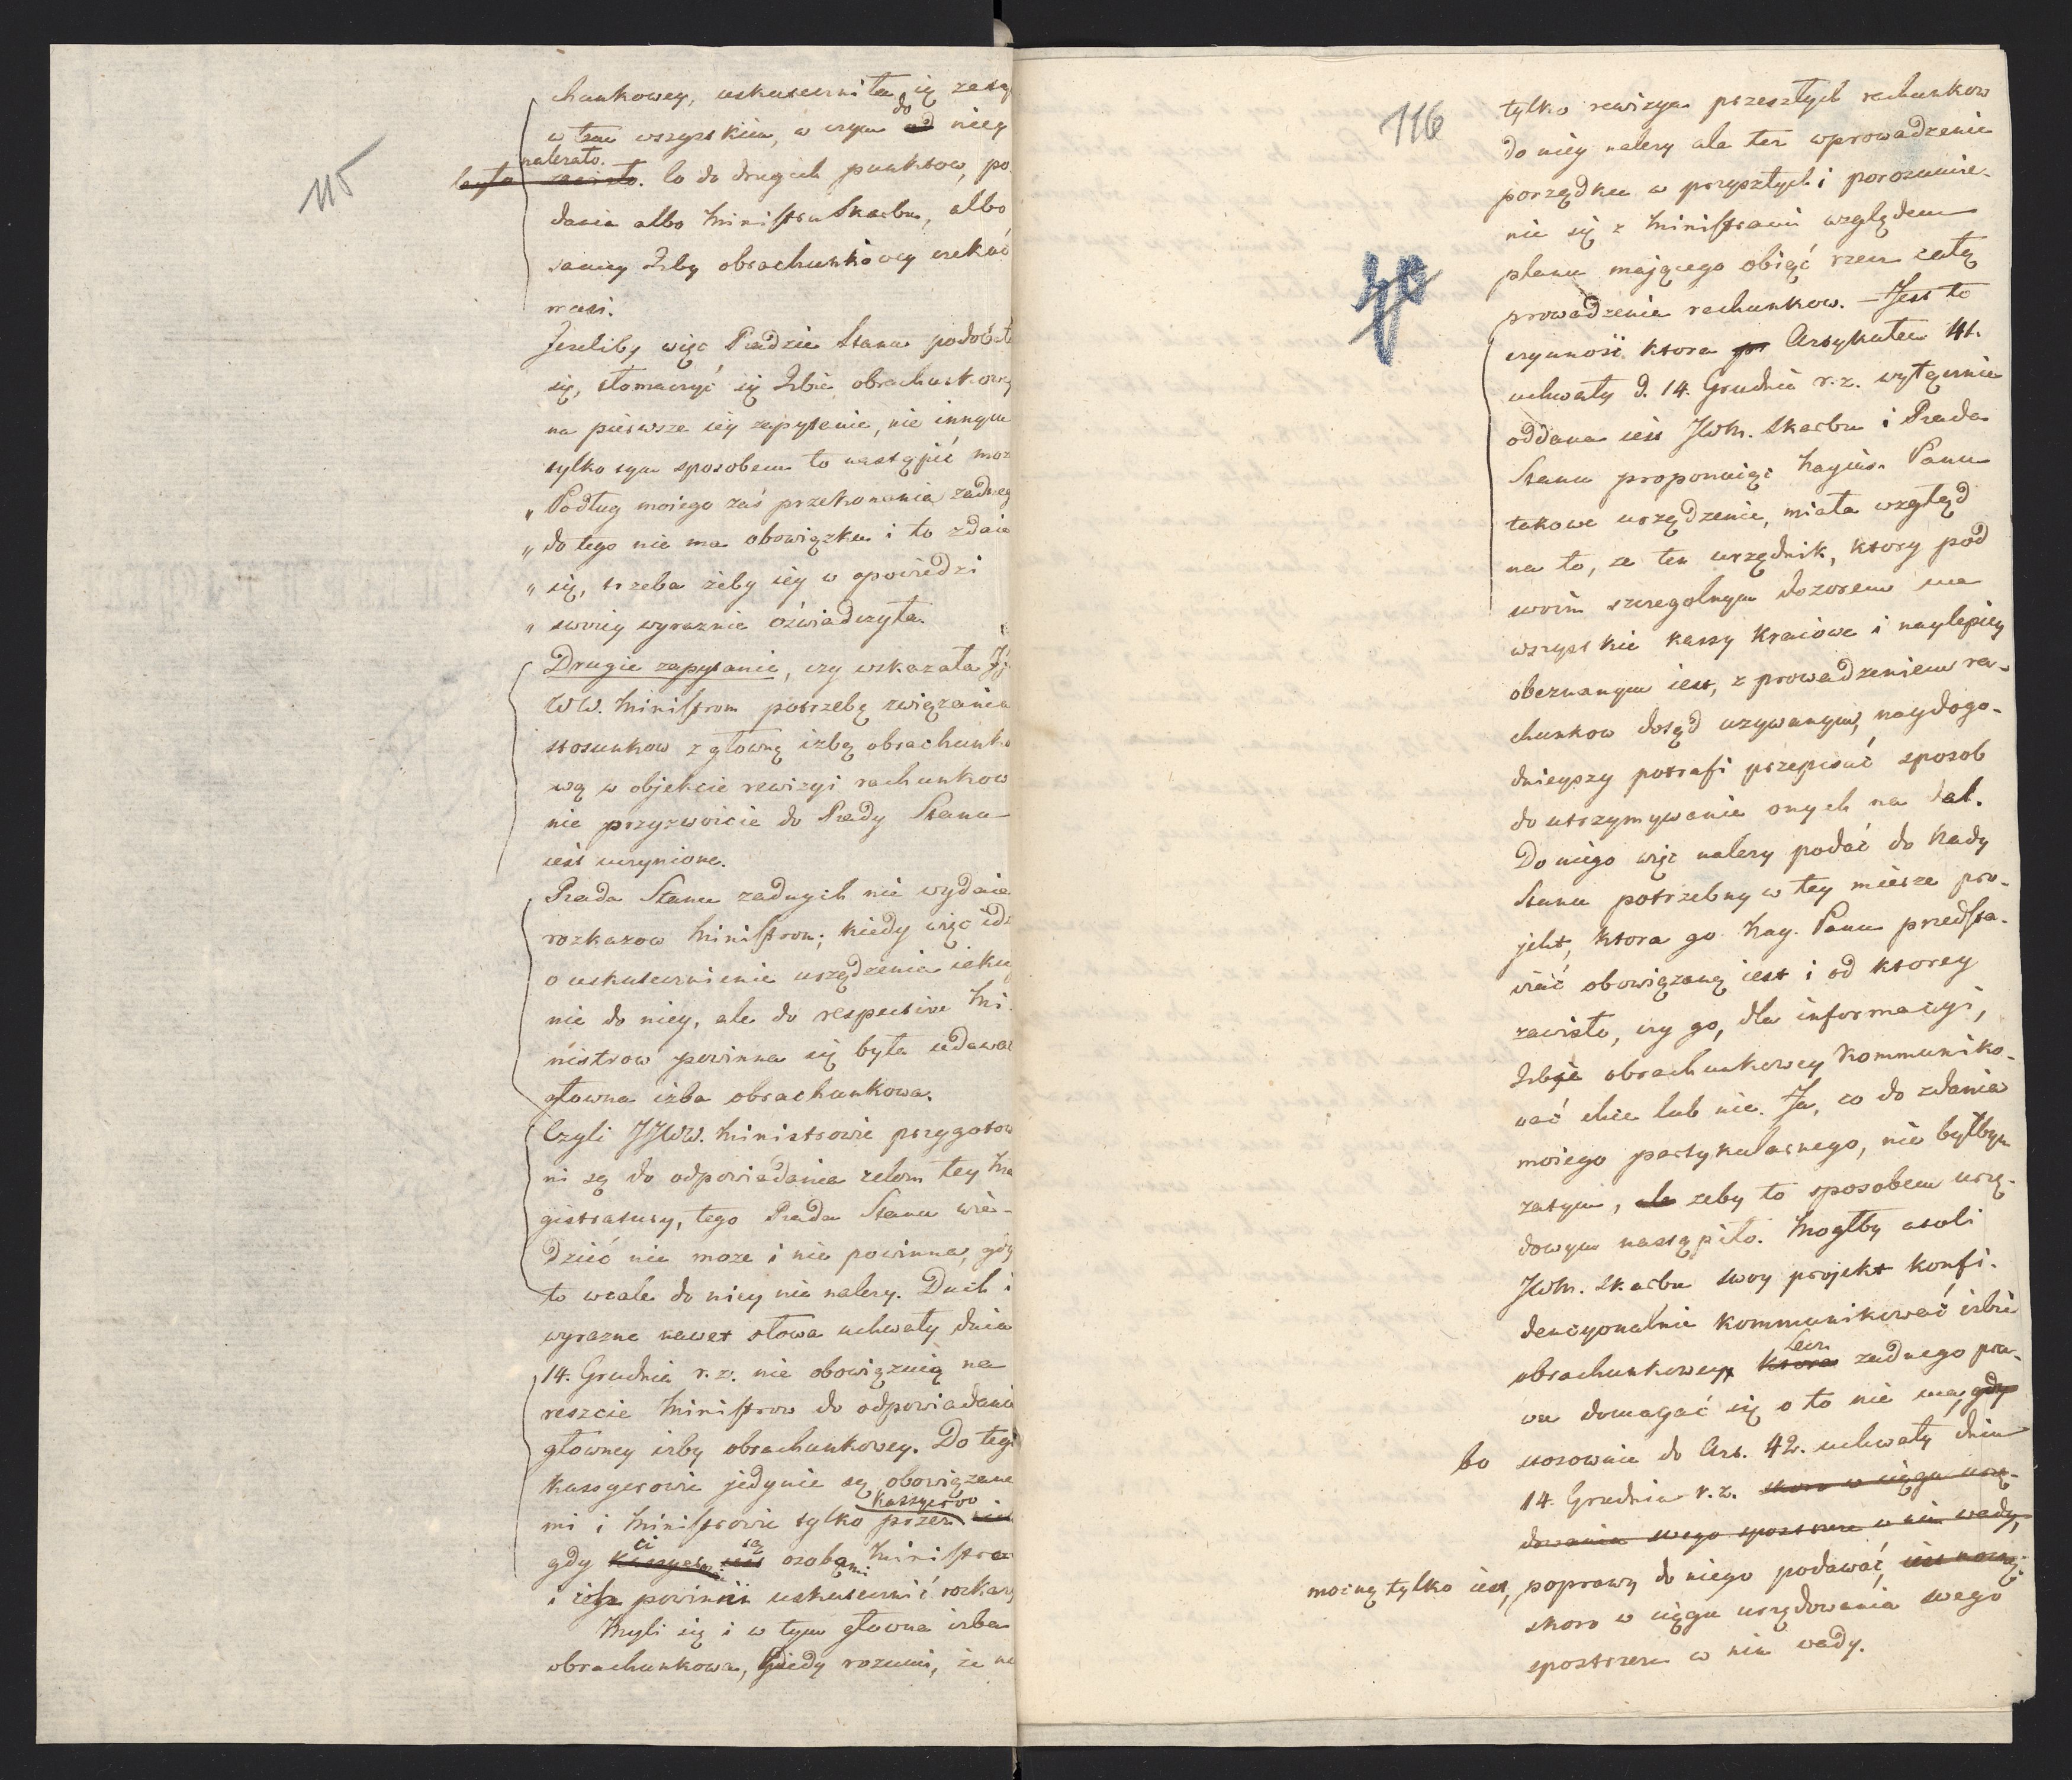 115
chunkowey, uskuteczniła się zatą
w tem wszystkim, w czym od do niey
było zawisło. należało. Co do drugich punktow, po-
dania albo Ministra Skarbu, albo
samey Izby obrachunkowey czekać
musi.
Jeżeliby więc Radzie Stanu podobało
się, tłomaczyć się Izbie obrachunkowey
na pierwsze iey zapytanie, nie innym
tylko tym sposobem to nastąpić moż
„ Podług moiego zaś przekonania żadneg
„ do tego nie ma obowiązku i to zdaie
„ się, trzeba żeby iey w opowiedzi
„ swoiey wyraznie oświadczyła.
Drugie zapytanie, czy wskazała JJ
WW. Ministrom potrzebę związania
stosunkow z głowną izbą obrachunko
wą w objekcie rewizyi rachunkow
nie przyzwoicie do Rady Stanu
iest uczynione.
Rada Stanu żadnych nie wydaie
rozkazow Ministrom; kiedy więc idz
o uskutecznienie urządzenia ieku
nie do niey, ale do respective Mi-
nistrow powinna się była udawać
głowna izba obrachunkowa.
Czyli JJWW. Ministrowie przygotow
ni są do odpowiadania celom tey Ma
gistratury, tego Rada Stanu wie-
dzieć nie może i nie powinna, gdy
to wcale do niey nie należy. Duch i
wyrazne nawet słowa uchwały dnia
14. Grudnia r. z. nie obowiązuią na
reszcie Ministrow do odpowiadania
głowney izby obrachunkowey. Do tego
kassyerowie jedynie są obowiązane
mi i Ministrowie tylko przez kassyerow
gdy kassyerowie ci iest są osobami Ministra
i ich powinni uskutecznić rozkazy
Myli się i w tym głowna izba
obrachunkowa, kiedy rozumi, że nie
116
tylko rewizya przeszłych rachunkow
do niey należy ale też wprowadzenie
porządku w przyszłych i porozumie-
nie się z Ministrami względem
planu mającego obiąć rzecz całą
prowadzenia rachunkow. – Jest to
czynność ktora Artykułem 41.
uchwały d. 14. Grudnia r. z. wyłącznie
oddana iest JWM. Skarbu i Rada
Stanu proponuiąc Nayias. Panu
takowe urządzenie, miała wzgląd
na to, że ten urzędnik, ktory pod
swoim szczegolnym dozorem ma
wszystkie kassy kraiowe i naylepiey
obeznanym iest, z prowadzeniem ra-
chunkow dotąd używanym, naydogo-
dnieyszy potrafi przepisać sposob
do utrzymywania onych na dal.
Do niego więc należy podać do Rady
Stanu potrzebny w tey mierze pro-
jekt, ktora go Nay. Panu przedsta-
wić obowiązaną iest i od ktorey
zawisło, czy go, dla informacyi,
Izbie obrachunkowey kommuniko-
wać chce lub nie. Ja, co do zdania
moiego partykularnego, nie byłbym
zatym, ale żeby to sposobem urzę-
dowym nastąpiło. Mogłby atoli
JWM. Skarbu swoy projekt konfi-
dencyonalnie kommunikować izbie
obrachunkowey, ktora Lecz żadnego pra-
wa domagać się o to nie ma, gdyż
bo stosownie do Art. 42. uchwały dnia
14. Grudnia r. z. skoro w ciągu urzę-
dowania swego spostrzeże w nim wady,
mocną tylko iest, poprawy do niego podawać, iest mocną
skoro w ciągu urzędowania swego
spostrzeże w nim wady.